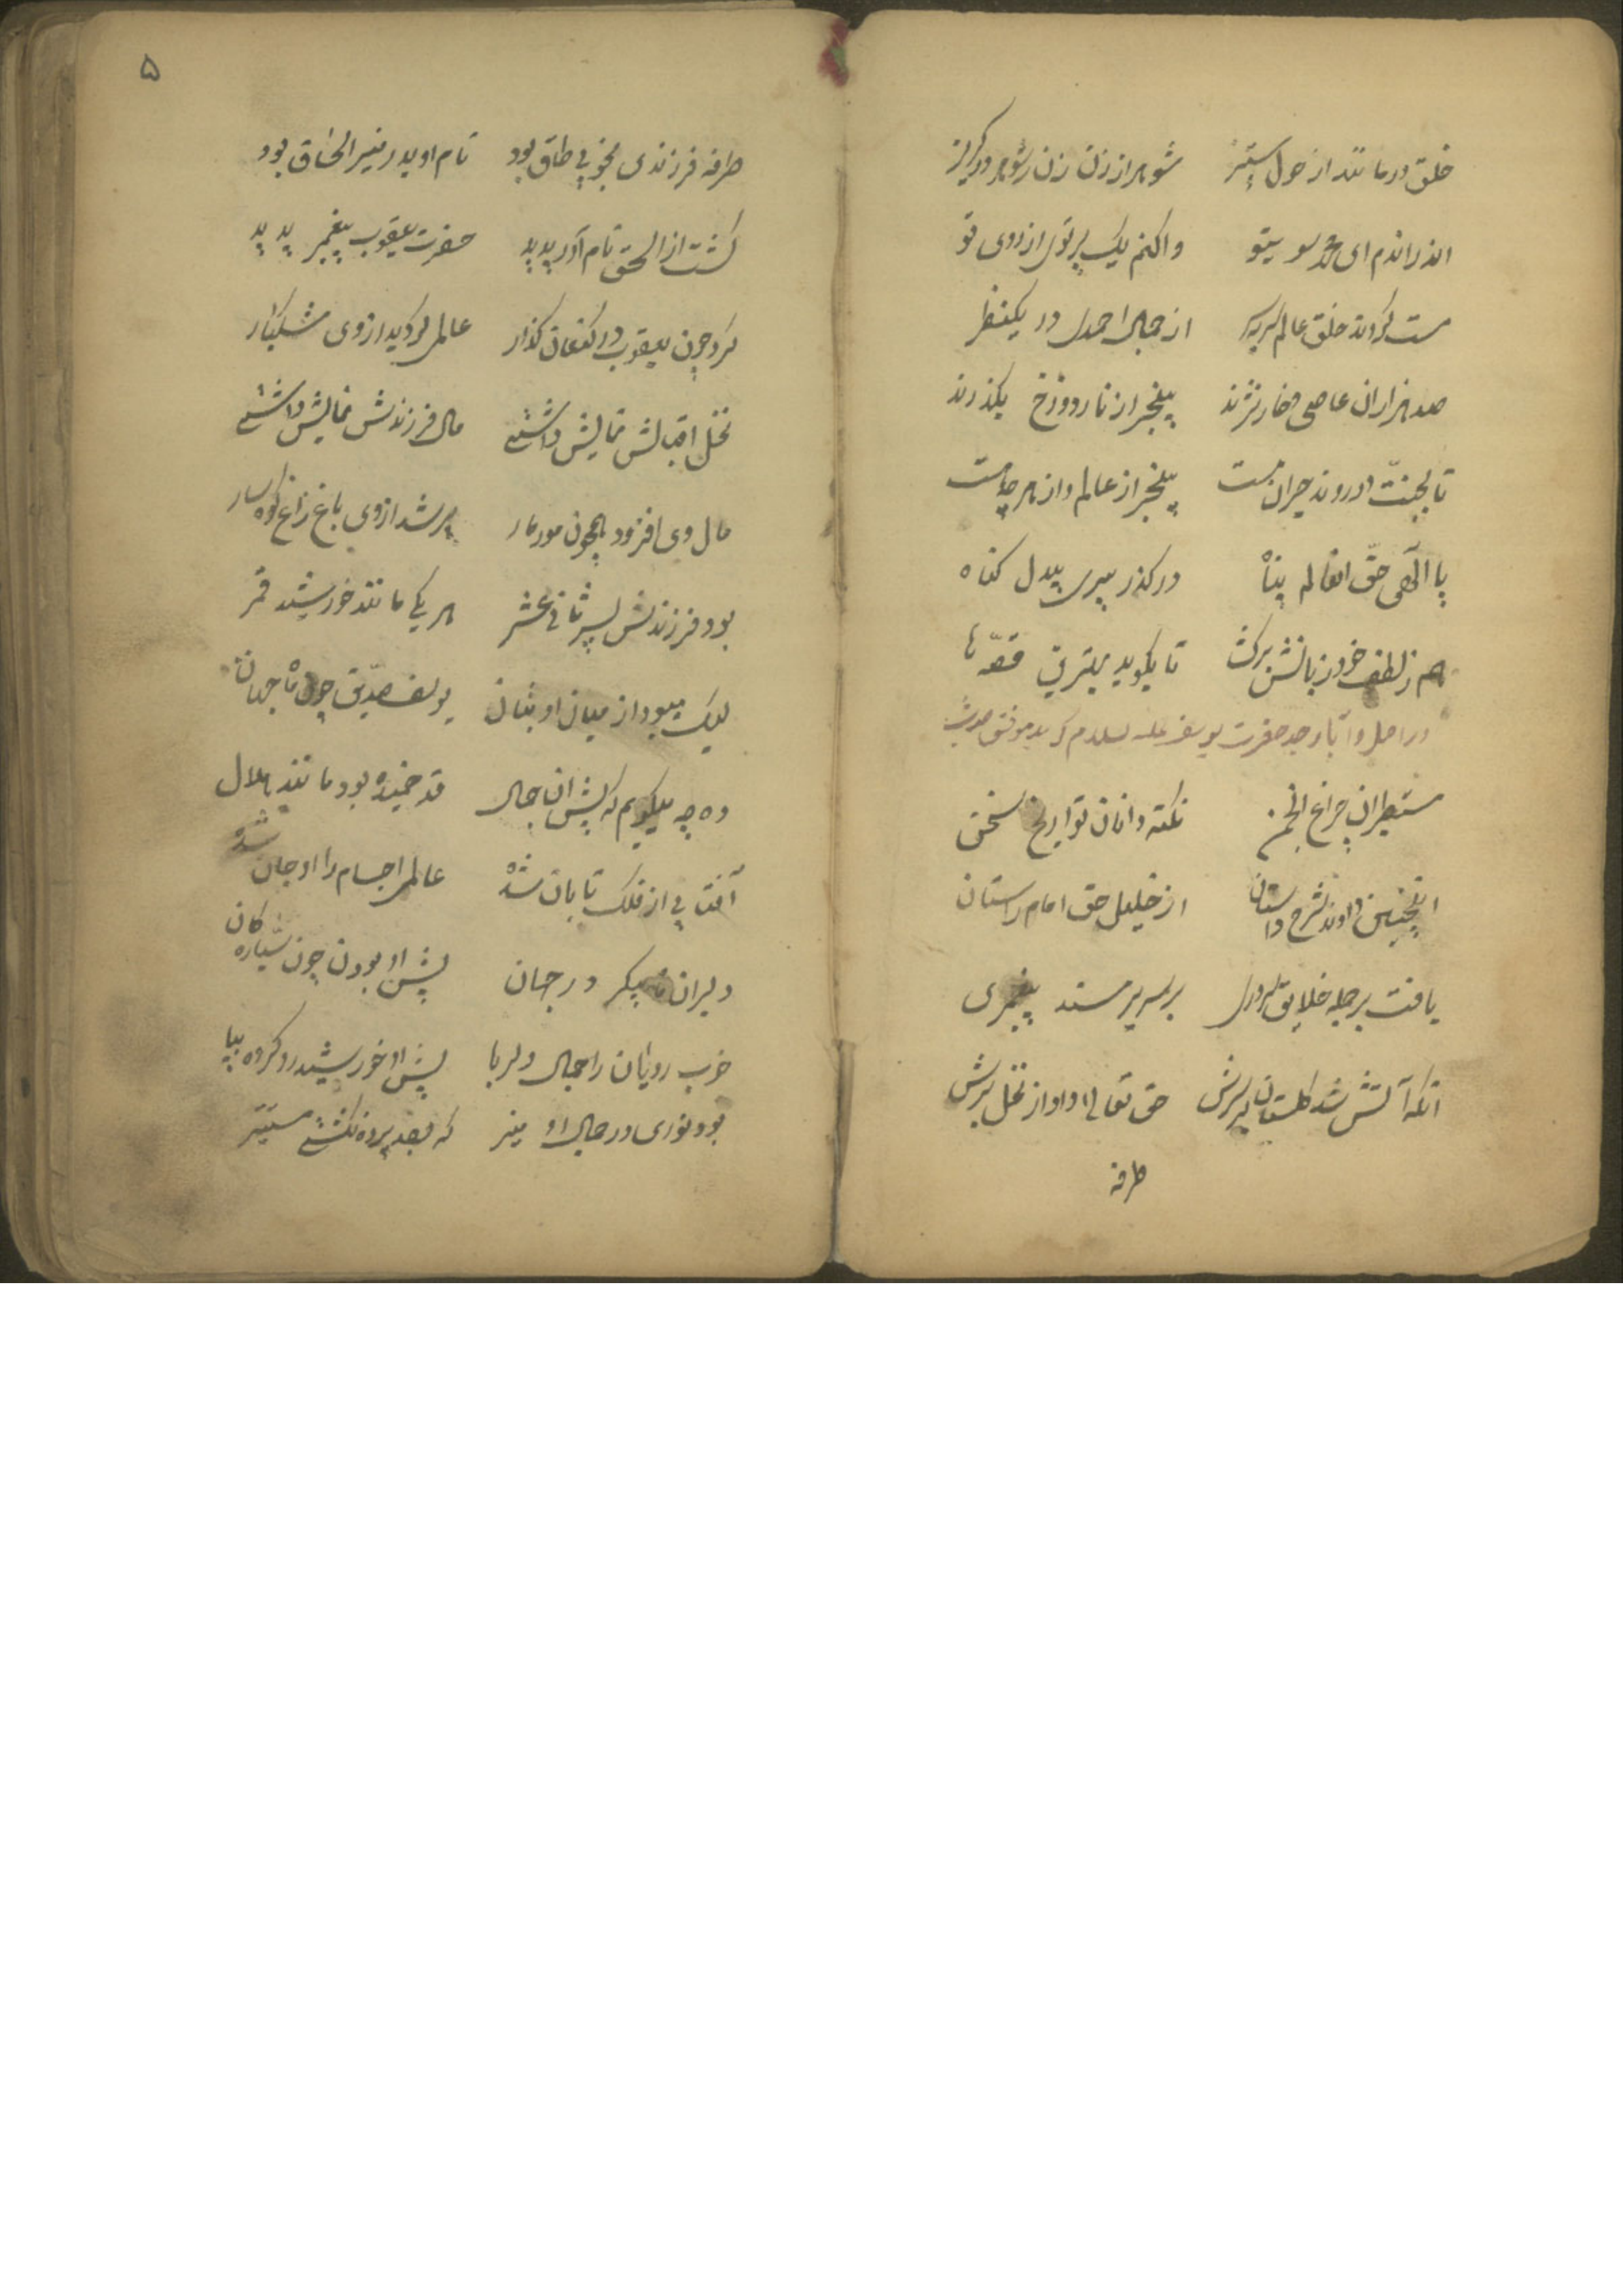 خلق درمانند از هول ستیز شوهر از زن زن ز شوهر در گریز
اندراندم ای محمد سو بسو واکنم یک پرتوی از روی تو
مست گردند خلق عالم سربسر از جمال احمدی در یکنظر
صد هزاران عاصی و خار و نژند بیخبر از نار دوزخ بگذرند
تا بجنت در روند حیران و مست بیخبر از عالم و از هر چه هست
یا الهی حق آنعالم پناه درگذر سیری بیدل گناه
هم ز لطف خود زبانش برگشا تا بگوید بهترین قصه‌ها
در اصل و آباء و جد حضرت یوسف علیه السلام گوید موفق حدیث
مسطران چراغ انجمن نکته دانان تواریخ سخن
اینچنین دادند شرح داستان از خلیل حق امام راستان
یافت بر جمله خلایق سروری بر سریر مسند پیغمبری
آنکه آتش شد گلستان بر سرش حق تعالی داد از نخل برش
طرفه
۵
طرفه فرزندی بخوبی طاق بود نام او بدر منیر اسحاق بود
گشت از اسحق نام آور پدید حضرت یعقوب پیغمبر پدید
کرد چون یعقوب در کنعان گذار عالمی گردید از وی مشکبار
نخل اقبالش نمایش داشتی مال فرزندش نمایش داشتی
مال وی افزود همچون مور مار پر شد از وی باغ زاغ کوهسار
بود فرزندش پسر ثانی عشر هر یکی مانند خورشید قمر
لیک میبود از میان او بنان یوسف صدیق چون ماه جهان
وه چه میگویم که پیش آن جمال قد خمیده بود مانند هلال
آفتابی از فلک تابان شده عالم اجسام را او جان شده
دلبران مه پیکر در جهان پیش او بودن چون سیاره گان
خوب رویان را جمال دلربا پیش او خورشید رو کرده بپا
بود نوری در جمال او منیر که بصد پرده نگشتی مستتیر